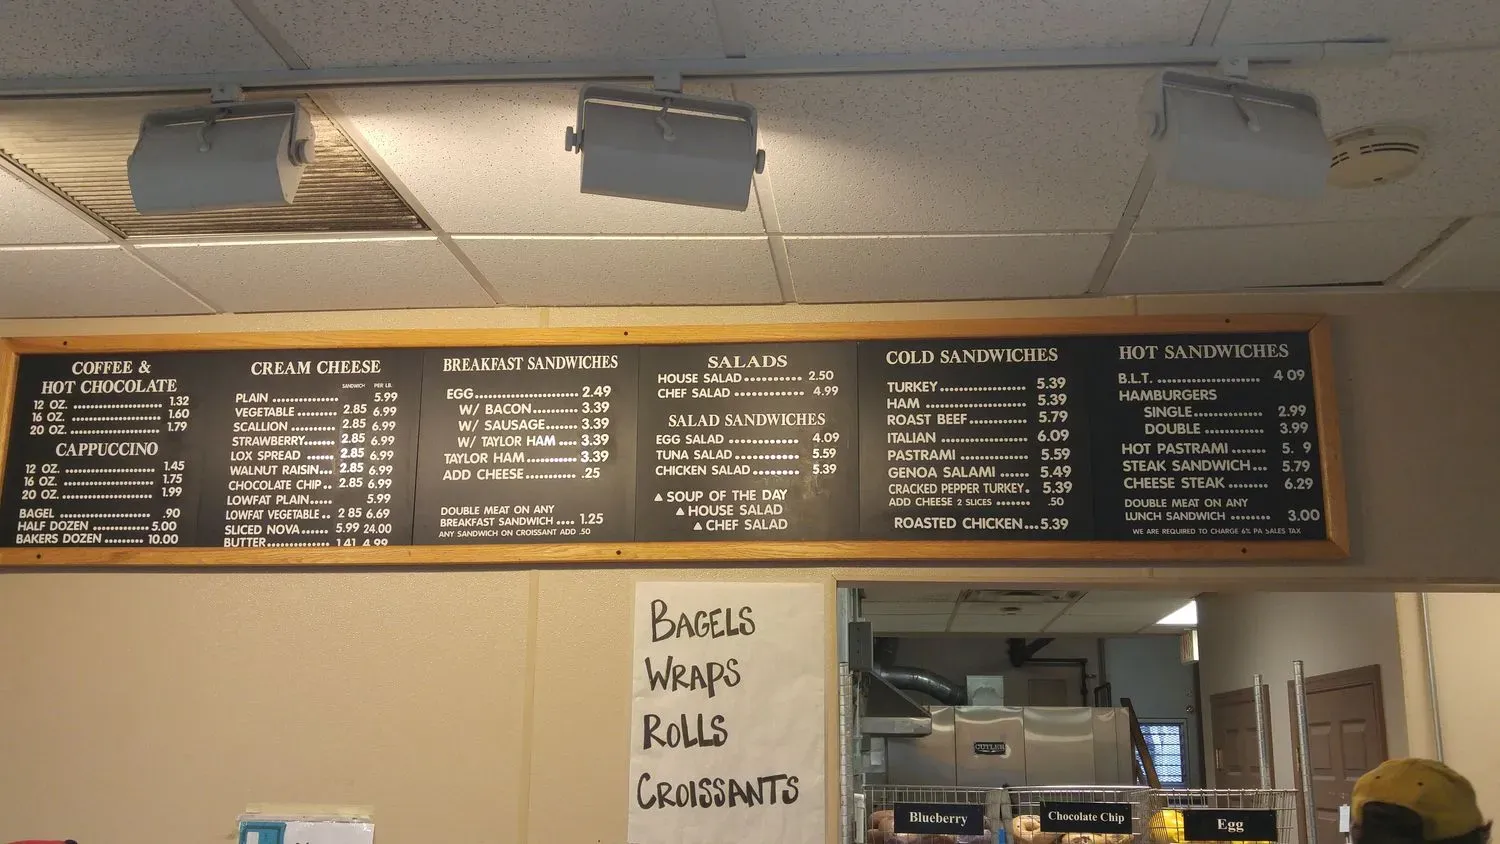 COFFEE &
HOT CHOCOLATE
12 OZ. ........................ 1.32
16 OZ. ........................ 1.60
20 OZ. ........................ 1.79
CAPPUCCINO
12 OZ. ........................ 1.45
16 OZ. ........................ 1.75
20 OZ. ........................ 1.99
BAGEL ........................ .90
HALF DOZEN ............ 5.00
BAKERS DOZEN ......... 10.00
CREAM CHEESE
SANDWICH PER LB.
PLAIN ........................ 5.99
VEGETABLE .......... 2.85 6.99
SCALLION ............ 2.85 6.99
STRAWBERRY........ 2.85 6.99
LOX SPREAD ....... 2.85 6.99
WALNUT RAISIN... 2.85 6.99
CHOCOLATE CHIP.. 2.85 6.99
LOWFAT PLAIN..... 5.99
LOWFAT VEGETABLE .. 2 85 6.69
SLICED NOVA...... 5.99 24.00
BUTTER............... 1.41 4.99
BREAKFAST SANDWICHES
EGG........................ 2.49
W/ BACON........... 3.39
W/ SAUSAGE......... 3.39
W/ TAYLOR HAM .... 3.39
TAYLOR HAM............ 3.39
ADD CHEESE............ .25
DOUBLE MEAT ON ANY
BREAKFAST SANDWICH .... 1.25
ANY SANDWICH ON CROISSANT ADD .50
SALADS
HOUSE SALAD............ 2.50
CHEF SALAD ............ 4.99
SALAD SANDWICHES
EGG SALAD ............ 4.09
TUNA SALAD............ 5.59
CHICKEN SALAD......... 5.39
▲ SOUP OF THE DAY
▲ HOUSE SALAD
▲ CHEF SALAD
COLD SANDWICHES
TURKEY.................. 5.39
HAM ..................... 5.39
ROAST BEEF............ 5.79
ITALIAN .................. 6.09
PASTRAMI ............... 5.59
GENOA SALAMI ...... 5.49
CRACKED PEPPER TURKEY. 5.39
ADD CHEESE 2 SLICES ......... .50
ROASTED CHICKEN...5.39
HOT SANDWICHES
B.L.T. ..................... 4 09
HAMBURGERS
SINGLE.................. 2.99
DOUBLE ............... 3.99
HOT PASTRAMI ......... 5. 9
STEAK SANDWICH... 5.79
CHEESE STEAK ......... 6.29
DOUBLE MEAT ON ANY
LUNCH SANDWICH ........ 3.00
WE ARE REQUIRED TO CHARGE 6% PA SALES TAX
BAGELS
WRAPS
ROLLS
CROISSANTS
CUTLER
Blueberry
Chocolate Chip
Egg